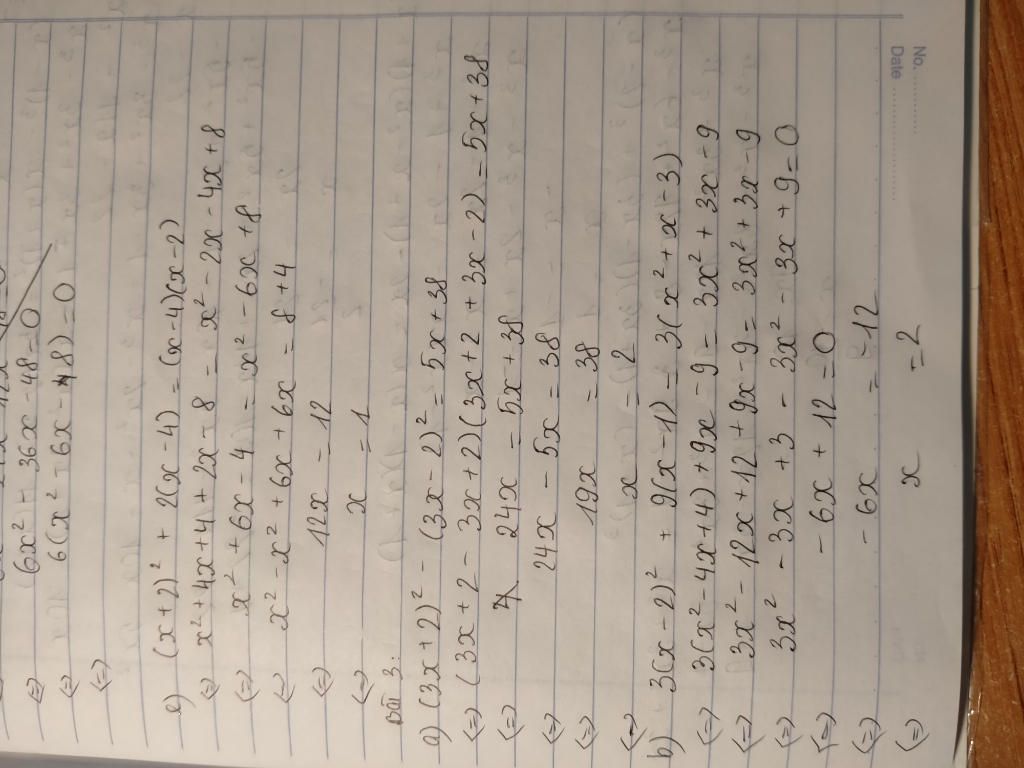 (=) 6x² + 36x - 48 = 0
(=) 6(x² + 6x - 48) = 0
(=)
e) (x + 2)² + 2(x - 4) = (x - 4)(x - 2)
(=) x² + 4x + 4 + 2x - 8 = x² - 2x - 4x + 8
(=) x² + 6x - 4 = x² - 6x + 8
(=) x² - x² + 6x + 6x = 8 + 4
(=) 12x = 12
(=) x = 1
Bài 3:
a) (3x + 2)² - (3x - 2)² = 5x + 38
(=) (3x + 2 - 3x + 2)(3x + 2 + 3x - 2) = 5x + 38
(=) 24x = 5x + 38
(=) 24x - 5x = 38
(=) 19x = 38
(=) x = 2
b) 3(x - 2)² + 9(x - 1) = 3(x² + x - 3)
(=) 3(x² - 4x + 4) + 9x - 9 = 3x² + 3x - 9
(=) 3x² - 12x + 12 + 9x - 9 = 3x² + 3x - 9
(=) 3x² - 3x + 3 - 3x² - 3x + 9 = 0
(=) - 6x + 12 = 0
(=) - 6x = -12
(=) x = 2
No.
Date